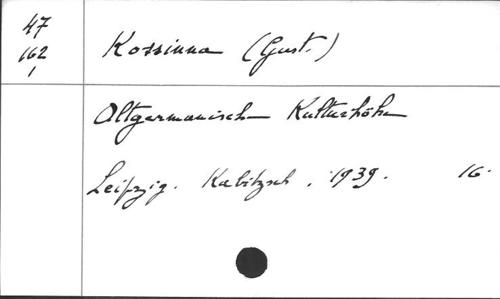 47
162
1
Kossinna (Gust.)
Altgermanische Kulturhöhe
Leipzig. Kabitzsch. 1939. 16.